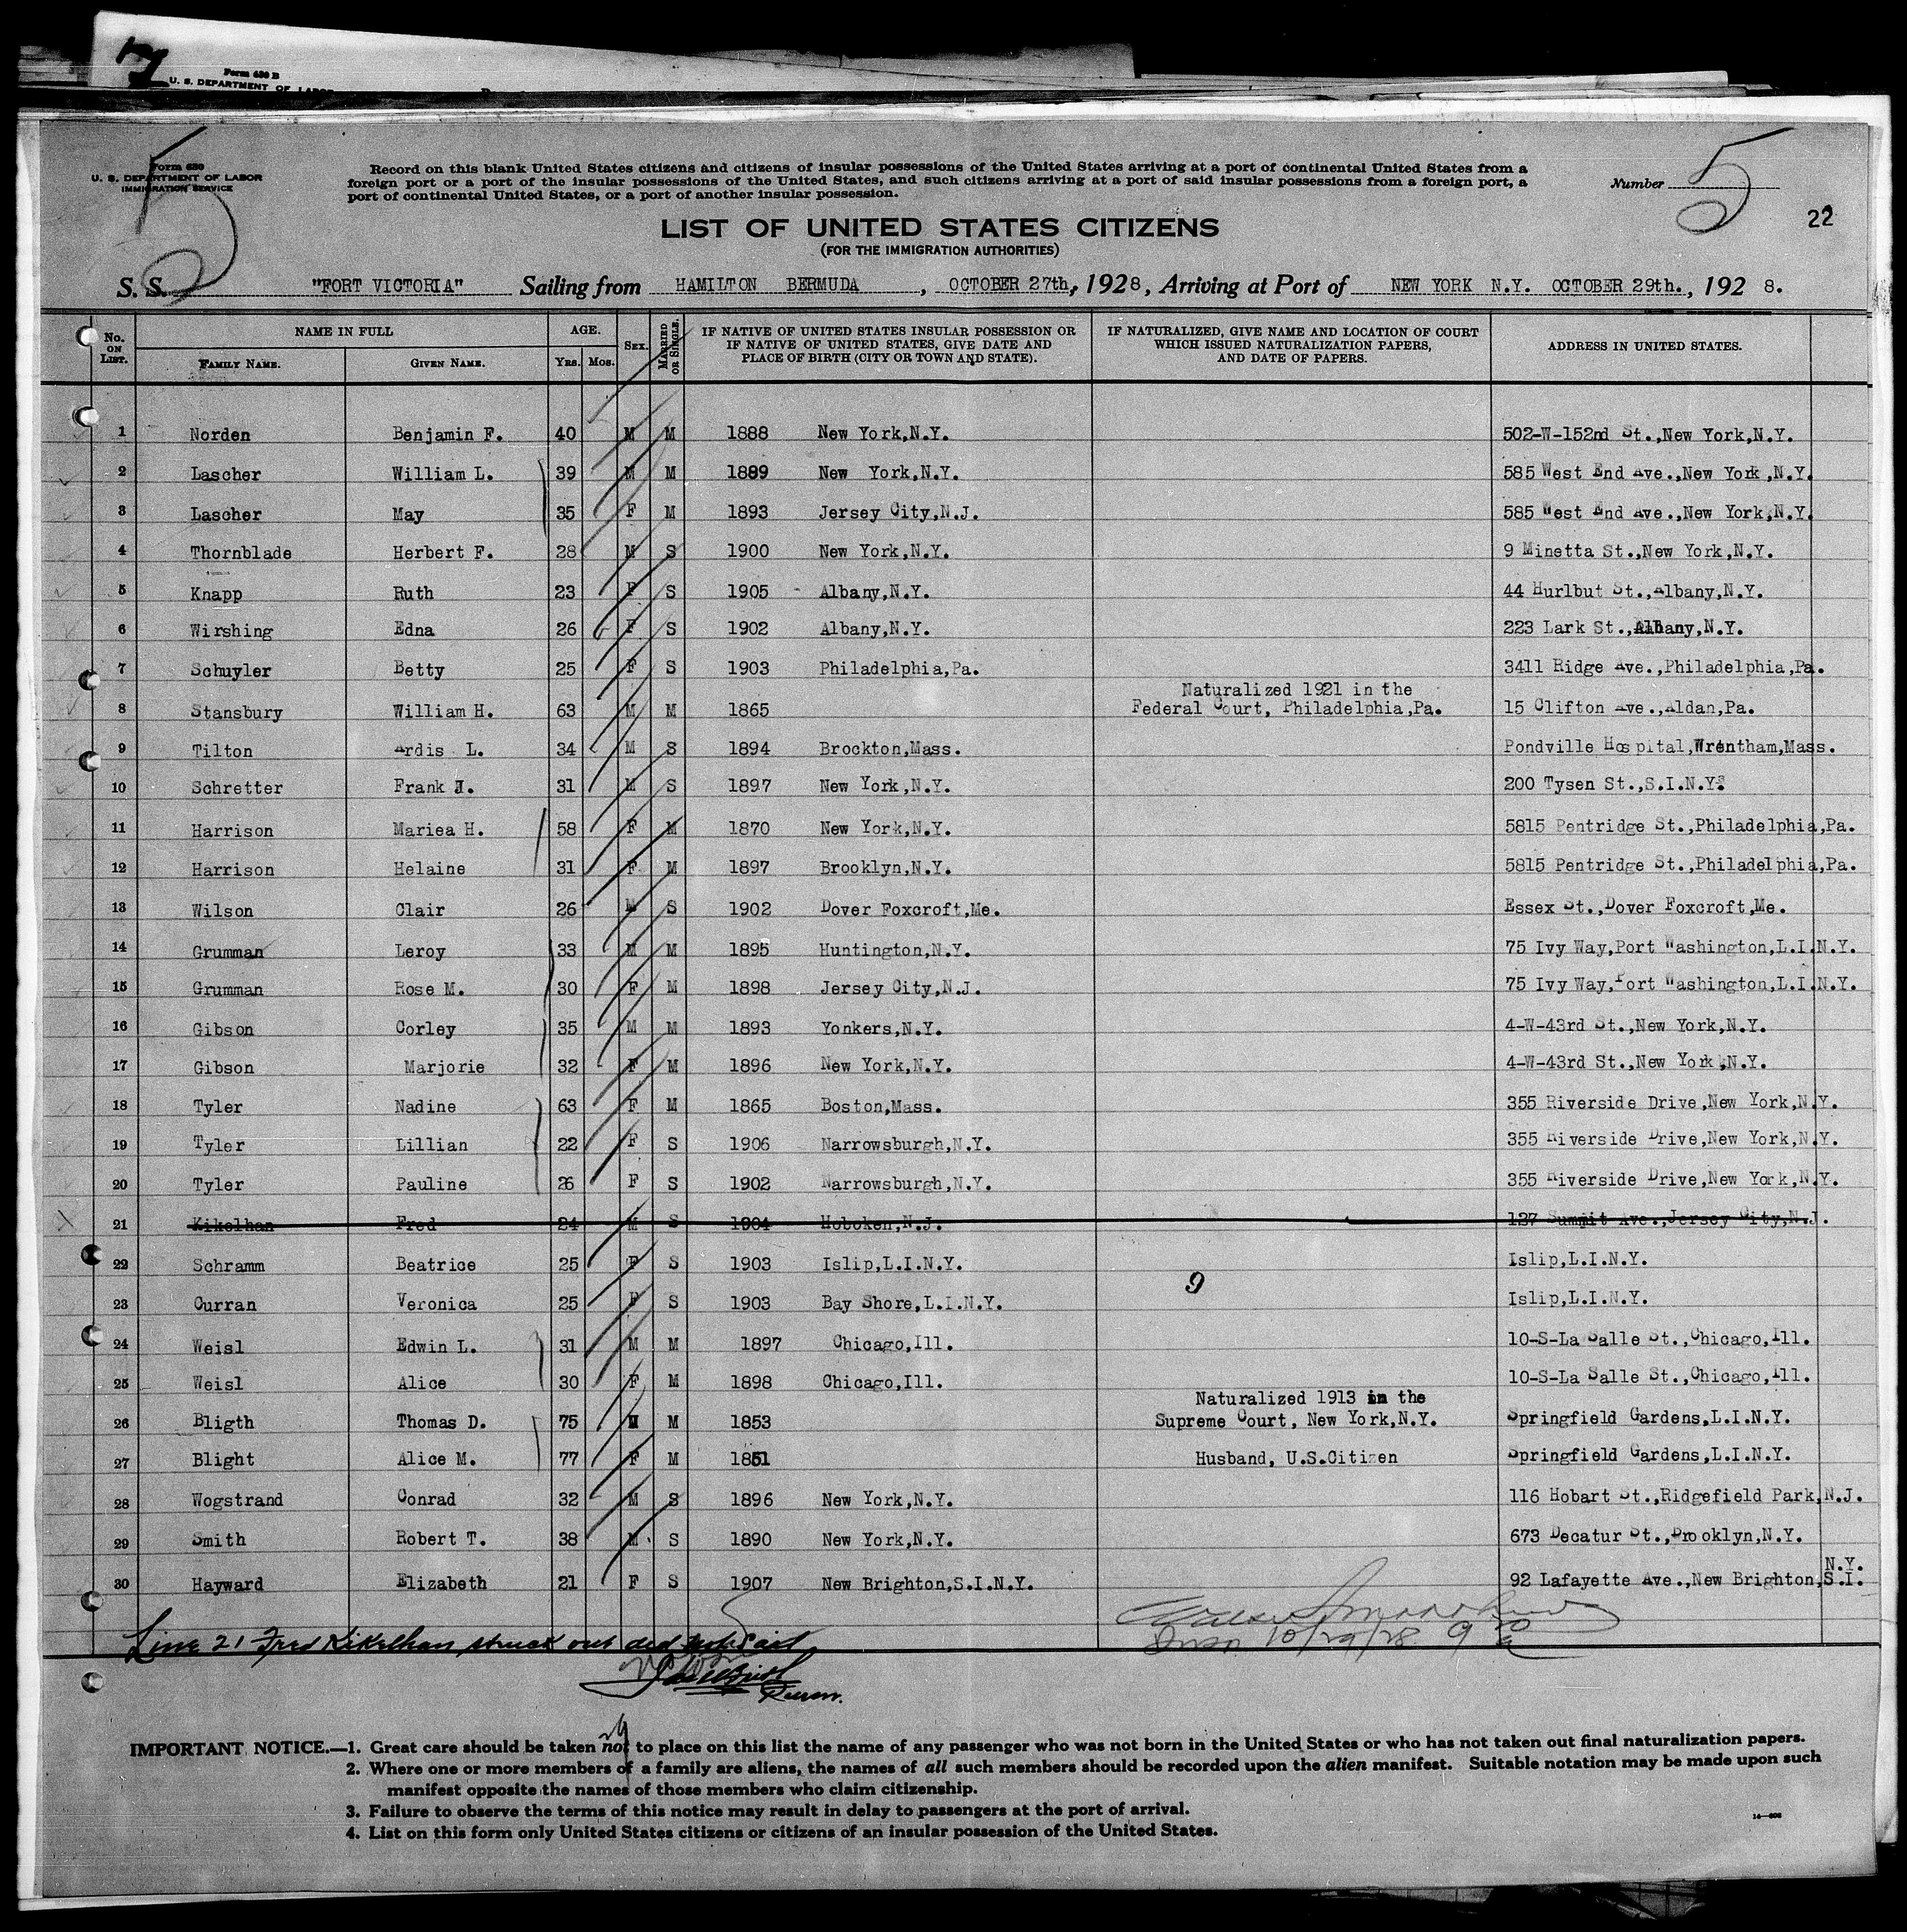 7
Form 630 B
U. S. DEPARTMENT OF LABOR
5
Form 630
U. S. DEPARTMENT OF LABOR
IMMIGRATION SERVICE
Record on this blank United States citizens and citizens of insular possessions of the United States arriving at a port of continental United States from a
foreign port or a port of the insular possessions of the United States, and such citizens arriving at a port of said insular possessions from a foreign port, a
port of continental United States, or a port of another insular possession.
Number 5
22
LIST OF UNITED STATES CITIZENS
(FOR THE IMMIGRATION AUTHORITIES)
S. S. "FORT VICTORIA" Sailing from HAMILTON BERMUDA, OCTOBER 27th, 1928, Arriving at Port of NEW YORK N.Y. OCTOBER 29th., 1928.
No. ON LIST. NAME IN FULL FAMILY NAME. GIVEN NAME. AGE. YRS. MOS. SEX. MARRIED OR SINGLE. IF NATIVE OF UNITED STATES INSULAR POSSESSION OR IF NATIVE OF UNITED STATES, GIVE DATE AND PLACE OF BIRTH (CITY OR TOWN AND STATE). IF NATURALIZED, GIVE NAME AND LOCATION OF COURT WHICH ISSUED NATURALIZATION PAPERS, AND DATE OF PAPERS. ADDRESS IN UNITED STATES.
1 Norden Benjamin F. 40 M M 1888 New York,N.Y. 502-W-152nd St.,New York,N.Y.
2 Lascher William L. 39 M M 1889 New York,N.Y. 585 West End Ave.,New York,N.Y.
3 Lascher May 35 F M 1893 Jersey City,N.J. 585 West End Ave.,New York,N.Y.
4 Thornblade Herbert F. 28 M S 1900 New York,N.Y. 9 Minetta St.,New York,N.Y.
5 Knapp Ruth 23 F S 1905 Albany,N.Y. 44 Hurlbut St.,Albany,N.Y.
6 Wirshing Edna 26 F S 1902 Albany,N.Y. 223 Lark St.,Albany,N.Y.
7 Schuyler Betty 25 F S 1903 Philadelphia,Pa. 3411 Ridge Ave.,Philadelphia,Pa.
8 Stansbury William H. 63 M M 1865 Naturalized 1921 in the Federal Court, Philadelphia,Pa. 15 Clifton Ave.,Aldan,Pa.
9 Tilton Ardis L. 34 M S 1894 Brockton,Mass. Pondville Hospital,Wrentham,Mass.
10 Schretter Frank J. 31 M S 1897 New York,N.Y. 200 Tysen St.,S.I.N.Y.
11 Harrison Mariea H. 58 F M 1870 New York,N.Y. 5815 Pentridge St.,Philadelphia,Pa.
12 Harrison Helaine 31 F M 1897 Brooklyn,N.Y. 5815 Pentridge St.,Philadelphia,Pa.
13 Wilson Clair 26 M S 1902 Dover Foxcroft,Me. Essex St.,Dover Foxcroft,Me.
14 Grumman Leroy 33 M M 1895 Huntington,N.Y. 75 Ivy Way,Port Washington,L.I.N.Y.
15 Grumman Rose M. 30 F M 1898 Jersey City,N.J. 75 Ivy Way,Port Washington,L.I.N.Y.
16 Gibson Corley 35 M M 1893 Yonkers,N.Y. 4-W-43rd St.,New York,N.Y.
17 Gibson Marjorie 32 F M 1896 New York,N.Y. 4-W-43rd St.,New York,N.Y.
18 Tyler Nadine 63 F M 1865 Boston,Mass. 355 Riverside Drive,New York,N.Y.
19 Tyler Lillian 22 F S 1906 Narrowsburgh,N.Y. 355 Riverside Drive,New York,N.Y.
20 Tyler Pauline 26 F S 1902 Narrowsburgh,N.Y. 355 Riverside Drive,New York,N.Y.
21 Kikelhan Fred 24 M S 1904 Hoboken,N.J. 127 Summit Ave.,Jersey City,N.J.
22 Schramm Beatrice 25 F S 1903 Islip,L.I.N.Y. Islip,L.I.N.Y.
9
23 Curran Veronica 25 F S 1903 Bay Shore,L.I.N.Y. Islip,L.I.N.Y.
24 Weisl Edwin L. 31 M M 1897 Chicago,Ill. 10-S-La Salle St.,Chicago,Ill.
25 Weisl Alice 30 F M 1898 Chicago,Ill. 10-S-La Salle St.,Chicago,Ill.
26 Bligth Thomas D. 75 M M 1853 Naturalized 1913 in the Supreme Court, New York,N.Y. Springfield Gardens,L.I.N.Y.
27 Blight Alice M. 77 F M 1851 Husband, U.S.Citizen Springfield Gardens,L.I.N.Y.
28 Wogstrand Conrad 32 M S 1896 New York,N.Y. 116 Hobart St.,Ridgefield Park,N.J.
29 Smith Robert T. 38 M S 1890 New York,N.Y. 673 Decatur St.,Brooklyn,N.Y.
30 Hayward Elizabeth 21 F S 1907 New Brighton,S.I.N.Y. 92 Lafayette Ave.,New Brighton,S.I. N.Y.
Line 21 Fred Kikelhan struck out did not sail
10/29/28
IMPORTANT NOTICE.—1. Great care should be taken not to place on this list the name of any passenger who was not born in the United States or who has not taken out final naturalization papers.
2. Where one or more members of a family are aliens, the names of all such members should be recorded upon the alien manifest. Suitable notation may be made upon such
manifest opposite the names of those members who claim citizenship.
3. Failure to observe the terms of this notice may result in delay to passengers at the port of arrival.
4. List on this form only United States citizens or citizens of an insular possession of the United States.